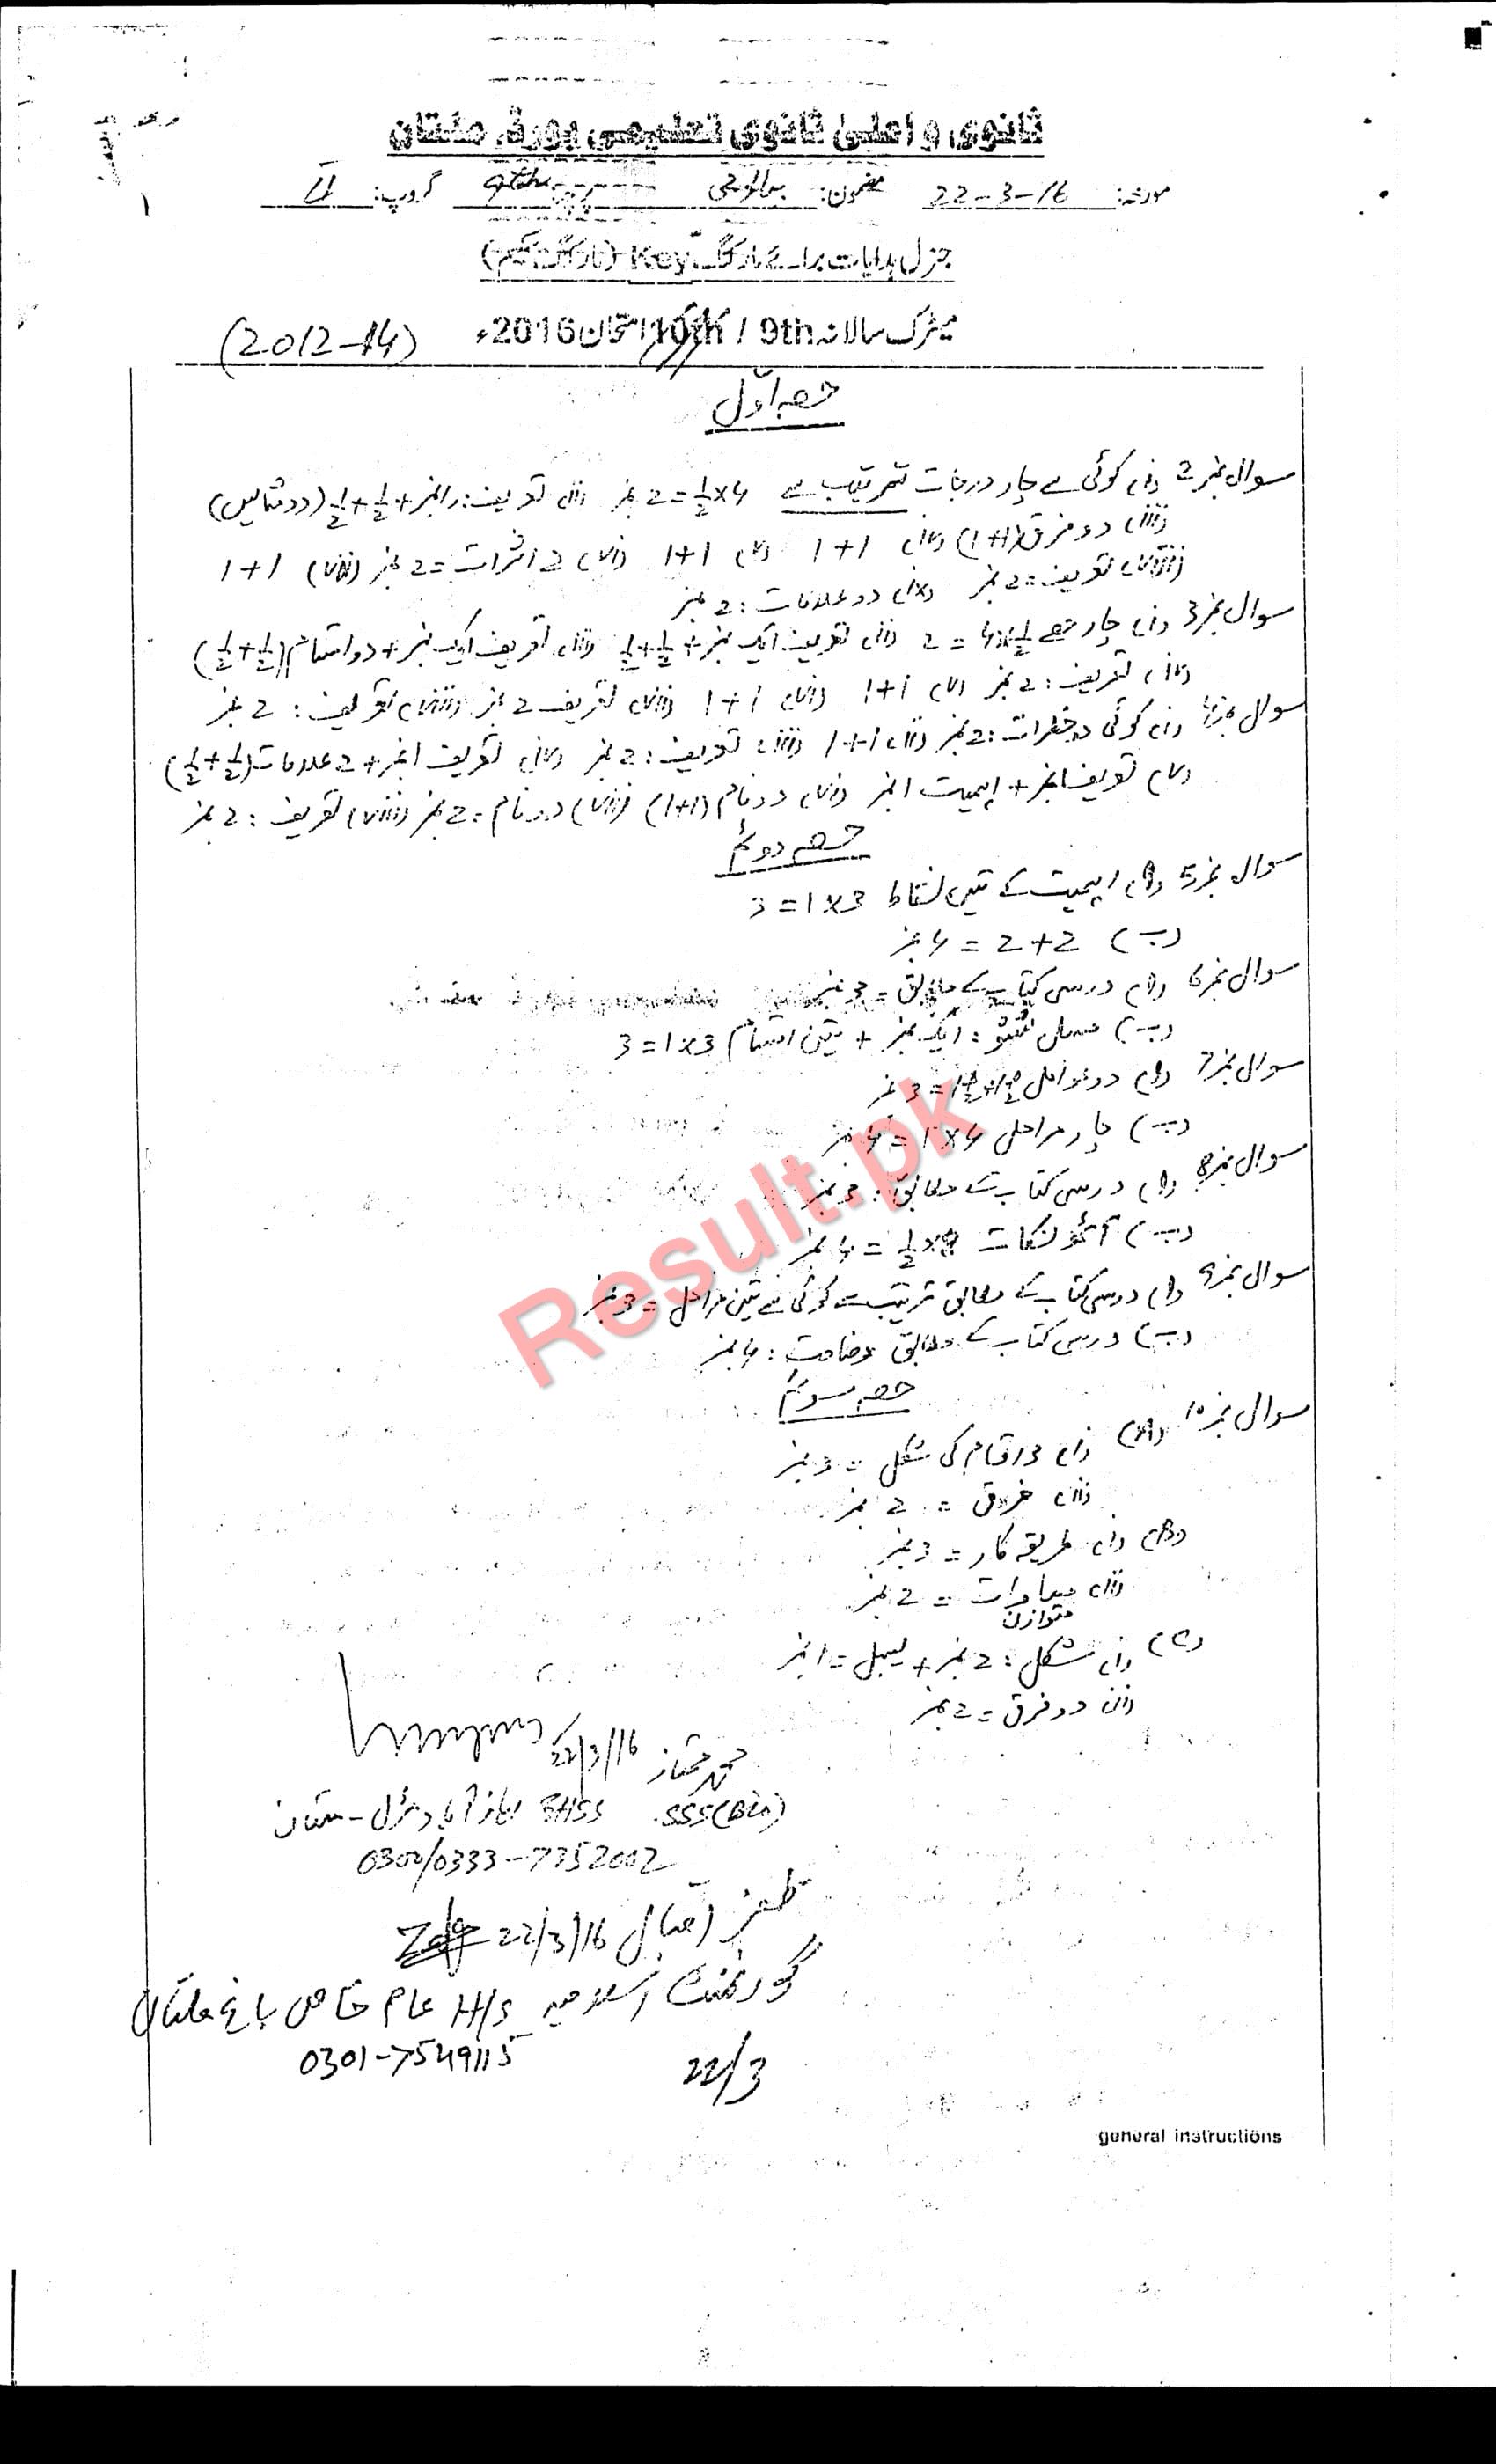 ثانوی و اعلیٰ ثانوی تعلیمی بورڈ، ملتان
مورخہ: 22-3-16 مضمون: بیالوجی پرچہ: 9th گروپ: II
جنرل ہدایات برائے مارکنگ Key (مارکنگ سکیم)
میٹرک سالانہ 9th / 10th امتحان 2016ء
(2012-14)
حصہ اوّل
سوال نمبر 2 (i) کوئی سے چار درجات ترتیب سے ½×4 = 2 نمبر (ii) تعریف: 1 نمبر + ½+½ (دو مثالیں)
(iii) دو فرق (1+1) (iv) 1+1 (v) 1+1 (vi) 2 اثرات = 2 نمبر (vii) 1+1
(viii) تعریف = 2 نمبر (ix) دو علامات: 2 نمبر
سوال نمبر 3 (i) چار حصے ½×4 = 2 (ii) تعریف ایک نمبر + ½+½ (iii) تعریف ایک نمبر + دو اقسام (½+½)
(iv) تعریف: 2 نمبر (v) 1+1 (vi) 1+1 (vii) تعریف 2 نمبر (viii) تعریف: 2 نمبر
سوال نمبر 4 (i) کوئی دو خطرات: 2 نمبر (ii) 1+1 (iii) تعریف: 2 نمبر (iv) تعریف 1 نمبر + 2 علامات (½+½)
(v) تعریف 1 نمبر + اہمیت 1 نمبر (vi) دو نام (1+1) (vii) دو نام = 2 نمبر (viii) تعریف: 2 نمبر
حصہ دوئم
سوال نمبر 5 (ا) اہمیت کے تین نقاط 3×1=3
(ب) 2+2 = 4 نمبر
سوال نمبر 6 (ا) درسی کتاب کے مطابق = 3 نمبر
(ب) ٹشو: ایک نمبر + تین اقسام 3×1=3
سوال نمبر 7 (ا) دو عوامل 1½+1½ = 3 نمبر
(ب) چار مراحل 4×1 = 4 نمبر
سوال نمبر 8 (ا) درسی کتاب کے مطابق: 3 نمبر
(ب) آٹھ نکات 8×½ = 4 نمبر
سوال نمبر 9 (ا) درسی کتاب کے مطابق ترتیب سے کوئی سے تین مراحل = 3 نمبر
(ب) درسی کتاب کے مطابق وضاحت: 4 نمبر
حصہ سوئم
سوال نمبر 10 (A) (i) 3 اقسام کی شکل = 3 نمبر
(ii) فرق = 2 نمبر
(B) (i) طریقہ کار = 3 نمبر
(ii) متوازن مساوات = 2 نمبر
(C) (i) شکل: 2 نمبر + لیبل = 1 نمبر
(ii) دو فرق = 2 نمبر
محمد ممتاز 22/3/16
SSS (Bio) GHSS ملتان
0300/0333-7352002
ظفر اقبال 22/3/16
گورنمنٹ اسلامیہ H/S عام خاص باغ ملتان
0301-7549115
22/3
general instructions
Result.pk